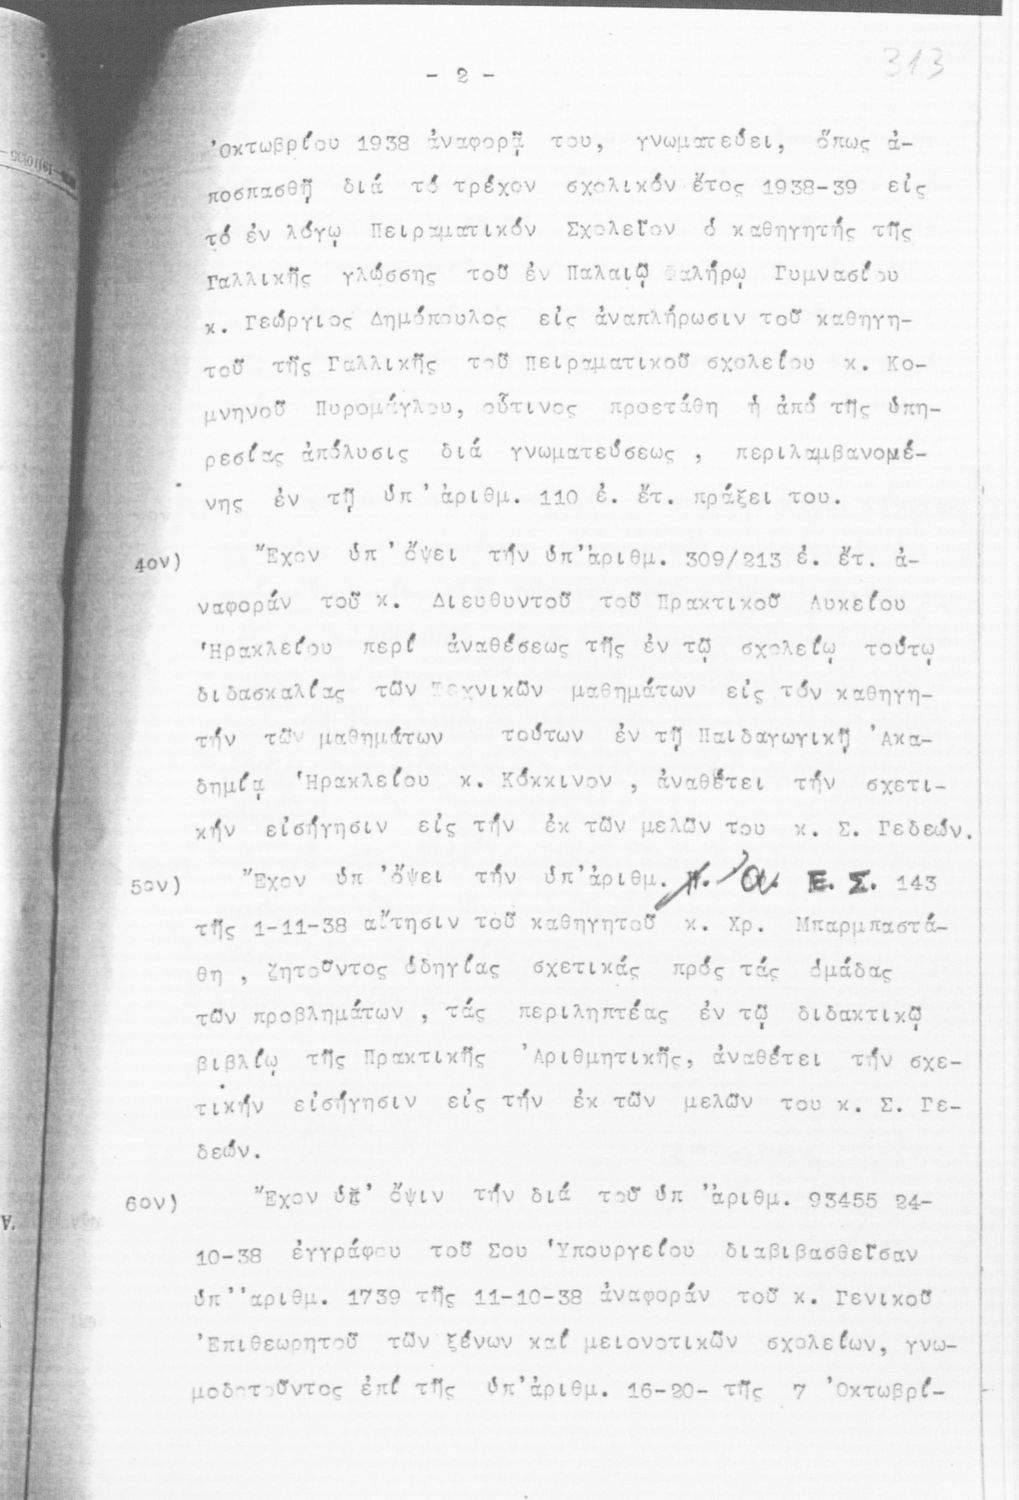 313
- 2 -
Ὀκτωβρίου 1938 ἀναφορᾷ του, γνωματεύει, ὅπως ἀ-
ποσπασθῇ διά τό τρέχον σχολικόν ἔτος 1938-39 εἰς
τό ἐν λόγῳ Πειραματικόν Σχολεῖον ὁ καθηγητής τῆς
Γαλλικῆς γλώσσης τοῦ ἐν Παλαιῷ Φαλήρῳ Γυμνασίου
κ. Γεώργιος Δημόπουλος εἰς ἀναπλήρωσιν τοῦ καθηγη-
τοῦ τῆς Γαλλικῆς τοῦ Πειραματικοῦ σχολείου κ. Κο-
μνηνοῦ Πυρομάγλου, οὗτινος προετάθη ἡ ἀπό τῆς ὑπη-
ρεσίας ἀπόλυσις διά γνωματεύσεως , περιλαμβανομέ-
νης ἐν τῇ ὑπ' ἀριθμ. 110 ἐ. ἔτ. πράξει του.
4ον) Ἔχον ὑπ' ὄψει τήν ὑπ'ἀριθμ. 309/213 ἐ. ἔτ. ἀ-
ναφοράν τοῦ κ. Διευθυντοῦ τοῦ Πρακτικοῦ Λυκείου
Ἡρακλείου περί ἀναθέσεως τῆς ἐν τῷ σχολείῳ τούτῳ
διδασκαλίας τῶν Τεχνικῶν μαθημάτων εἰς τόν καθηγη-
τήν τῶν μαθημάτων τούτων ἐν τῇ Παιδαγωγικῇ Ἀκα-
δημίᾳ Ἡρακλείου κ. Κόκκινον , ἀναθέτει τήν σχετι-
κήν εἰσήγησιν εἰς τήν ἐκ τῶν μελῶν του κ. Σ. Γεδεών.
5ον) Ἔχον ὑπ 'ὄψει τήν ὑπ'ἀριθμ. α. Ε. Σ. 143
τῆς 1-11-38 αἴτησιν τοῦ καθηγητοῦ κ. Χρ. Μπαρμπαστά-
θη , ζητοῦντος ὁδηγίας σχετικάς πρός τάς ὁμάδας
τῶν προβλημάτων , τάς περιληπτέας ἐν τῷ διδακτικῷ
βιβλίῳ τῆς Πρακτικῆς Ἀριθμητικῆς, ἀναθέτει τήν σχε-
τικήν εἰσήγησιν εἰς τήν ἐκ τῶν μελῶν του κ. Σ. Γε-
δεών.
6ον) Ἔχον ὑπ' ὄψιν τήν διά τοῦ ὑπ 'ἀριθμ. 93455 24-
10-38 ἐγγράφου τοῦ Σου Ὑπουργείου διαβιβασθεῖσαν
ὑπ''αριθμ. 1739 τῆς 11-10-38 ἀναφοράν τοῦ κ. Γενικοῦ
Ἐπιθεωρητοῦ τῶν ξένων καί μειονοτικῶν σχολείων, γνω-
μοδοτοῦντος ἐπί τῆς ὑπ'ἀριθμ. 16-20- τῆς 7 Ὀκτωβρί-